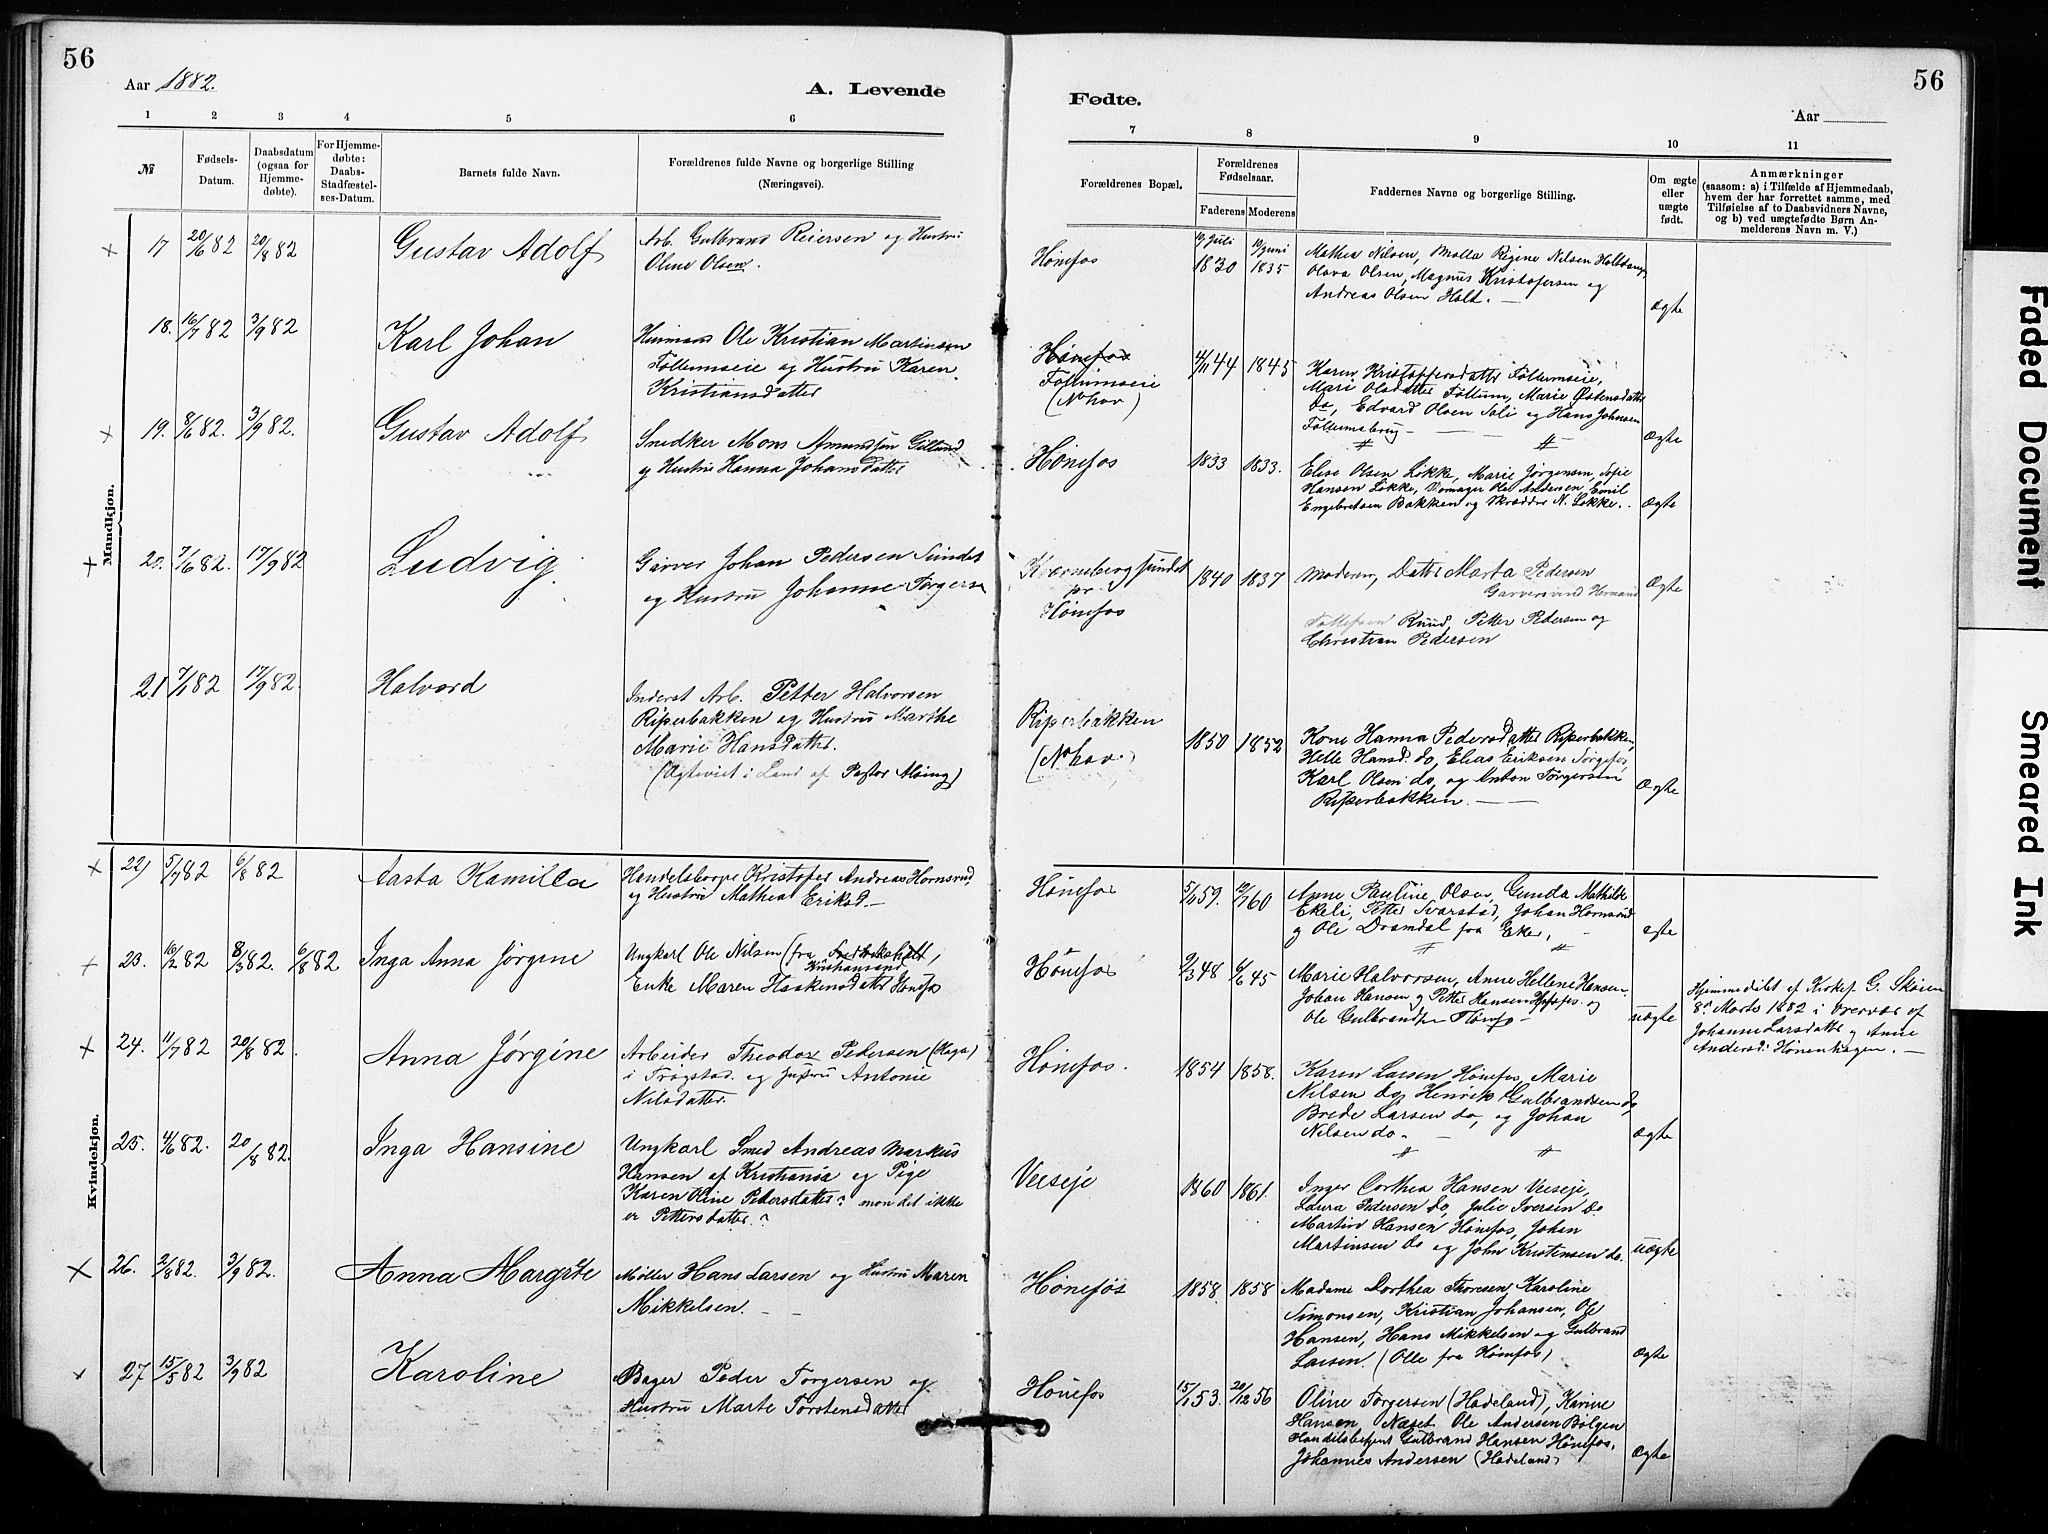 56
Aar 1882.
A. Levende
1 2 3 4 5 6
№
Fødsels-
Datum.
Daabsdatum
(ogsaa for
Hjemme-
døbte).
For Hjemme-
døbte:
Daabs-
Stadfæstel-
ses-Datum.
Barnets fulde Navn.
Forældrenes fulde Navne og borgerlige Stilling
(Næringsvei).
Mandkjøn.
17 20/6 82 20/8 82 Gustav Adolf
Arb. Gulbrand Reiersen og Hustru
Oline Olsen.
18. 16/7 82 3/9 82 Karl Johan
Ole Kristian Martinsen
Follumseie og Hustru Karen
Kristiansdatter
19. 8/6 82. 3/9 82. Gustav Adolf
Snedker Mons Amundsen
og Hustru Hanna Johansdatter
20. 7/6 82. 17/9 82 Ludvig
Garver Johan Pedersen Sundet
og Hustru Johanne Torgersen
21 7/1 82 17/9 82. Halvord
Inderst Arb. Petter Halvorsen
Riperbakken og Hustru Marthe
Marie Hansdatter.
(Ægteviet i Land af Pastor Alsing)
Kvindekjøn.
22) 5/7 82 6/8 82 Aasta Kamilla
Handelsborger Kristofer Andreas Hornsrud
og Hustru Mathea Eriksd. —
23. 16/2 82 8/3 82. 6/8 82 Inga Anna Jørgine
Ungkarl Ole Nilsen (fra Fredrikshald,
Kristiansand)
Enke Maren Haakensdatter Hønefos
24. 11/7 82 20/8 82. Anna Jørgine
Arbeider Theodor Pedersen (Haga)
i Trøgstad. og Hustru Antonie
Nilsdatter.
25. 4/6 82. 20/8 82. Inga Hansine
Ungkarl Smed Andreas Markus
Hansen af Kristiania og Pige
Karen Oline Pedersdatter? mon det ikke
er Pettersdatter?
26. 2/8 82. 3/9 82. Anna Margrete
Møller Hans Larsen og Hustru Maren
Mikkelsen. —
27 15/5 82 3/9 82 Karoline
Bager Peder Torgersen og
Hustru Marte Torstensdatter
56
Fødte.
Aar
7 8 9 10 11
Forældrenes Bopæl.
Forældrenes
Fødselsaar.
Faderens Moderens
Faddernes Navne og borgerlige Stilling.
Om ægte
eller
uægte
født.
Anmærkninger
(saasom: a) i Tilfælde af Hjemmedaab,
hvem der har forrettet samme, med
Tilføielse af to Daabsvidners Navne,
og b) ved uægtefødte Børn An-
melderens Navn m. V.)
Hønefos 19 Juli 1830 10 Juni 1835
Mathea Nilsen, Molla Regine Nilsen
Olava Olsen, Magnus Kristofersen og
Andreas Olsen Holt. —
ægte
Hønefos
Follumseie
(N hov)
4/11 44 1845
Karen Kristoffersdatter Follumseie,
Mari Olsdatter Follum, Marie Østensdatter
do, Edvard Olsen Soli og Hans Johnsen
Follumsbrug —
Ægte
Hønefos 1833 1833.
Elise Olsen Løkke, Marie Jørgensen, Sofie
Hansen Løkke, Ole Andersen, Emil
Engebretsen Bakken og Skrædder N. Løkke.
Ægte
Kverneberg sundet
pr.
Hønefos
1840 1837
Moderen, Datter Marta Pedersen
Garversvend Herman
Tollefsen Ruud, Petter Pedersen og
Christian Pedersen
Ægte
Riperbakken
(N hov.)
1850 1852
Kone Hanna Pedersdatter Riperbakken,
Helle Hansd. do, Elias Eriksen
Karl Olsen do, og Anton Torgersen
Riperbakken. —
Ægte
Hønefos 5/11 59. 12/7 60
Anne Pauline Olsen, Gunda Mathilde
Ekeli, Petter Svarstad, Johan Hornsrud
og Ole Dramdal fra Eker,
ægte
Hønefos 9/3 48 6/6 45
Marie Halvorsen, Anne Hellene Hansen
Johan Hansen og Petter Hansen Hønefos og
Ole Gulbrandsen Hønefos —
uægte
Hjemmedøbt af Kirkes. G. Skøien
8de Marts 1882 i Overvær af
Johanne Larsdatter og Anne
Andersd. Hønenhagen. —
Hønefos. 1854 1858.
Karen Larsen Hønefos, Marie
Nilsen do, Henrik Gulbrandsen do,
Brede Larsen do, og Johan
Nilsen do. —
Ægte
Veiseje 1860 1861.
Inger Dorthea Hansen Veiseje,
Laura Pedersen do, Julie Iversen do
Martin Hansen Hønefos, Johan
Martinsen do og John Kristensen do.
uægte
Hønefos 1858. 1858
Madame Dorthea Thoresen, Karoline
Simonsen, Kristian Johansen, Ole
Hansen, Hans Mikkelsen og Gulbrand
Larsen. (Alle fra Hønefos)
Ægte
Hønefos 15/1 53. 20/12 56
Oline Torgersen (Hadeland), Karine
Hansen Næset Ole Andersen Bølgen
Handelsbetjent Gulbrand Hansen Hønefos,
Johannes Andersen (Hadeland)
Ægte
Faded Document
Smeared Ink